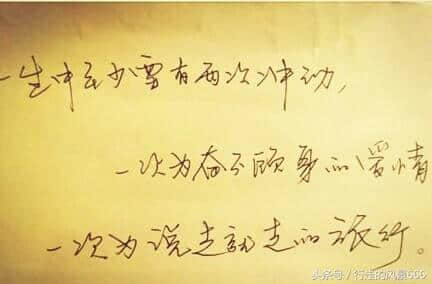 一生中至少需有两次冲动，
一次为奋不顾身的爱情
一次为说走就走的旅行。
头条号／行走的风景666